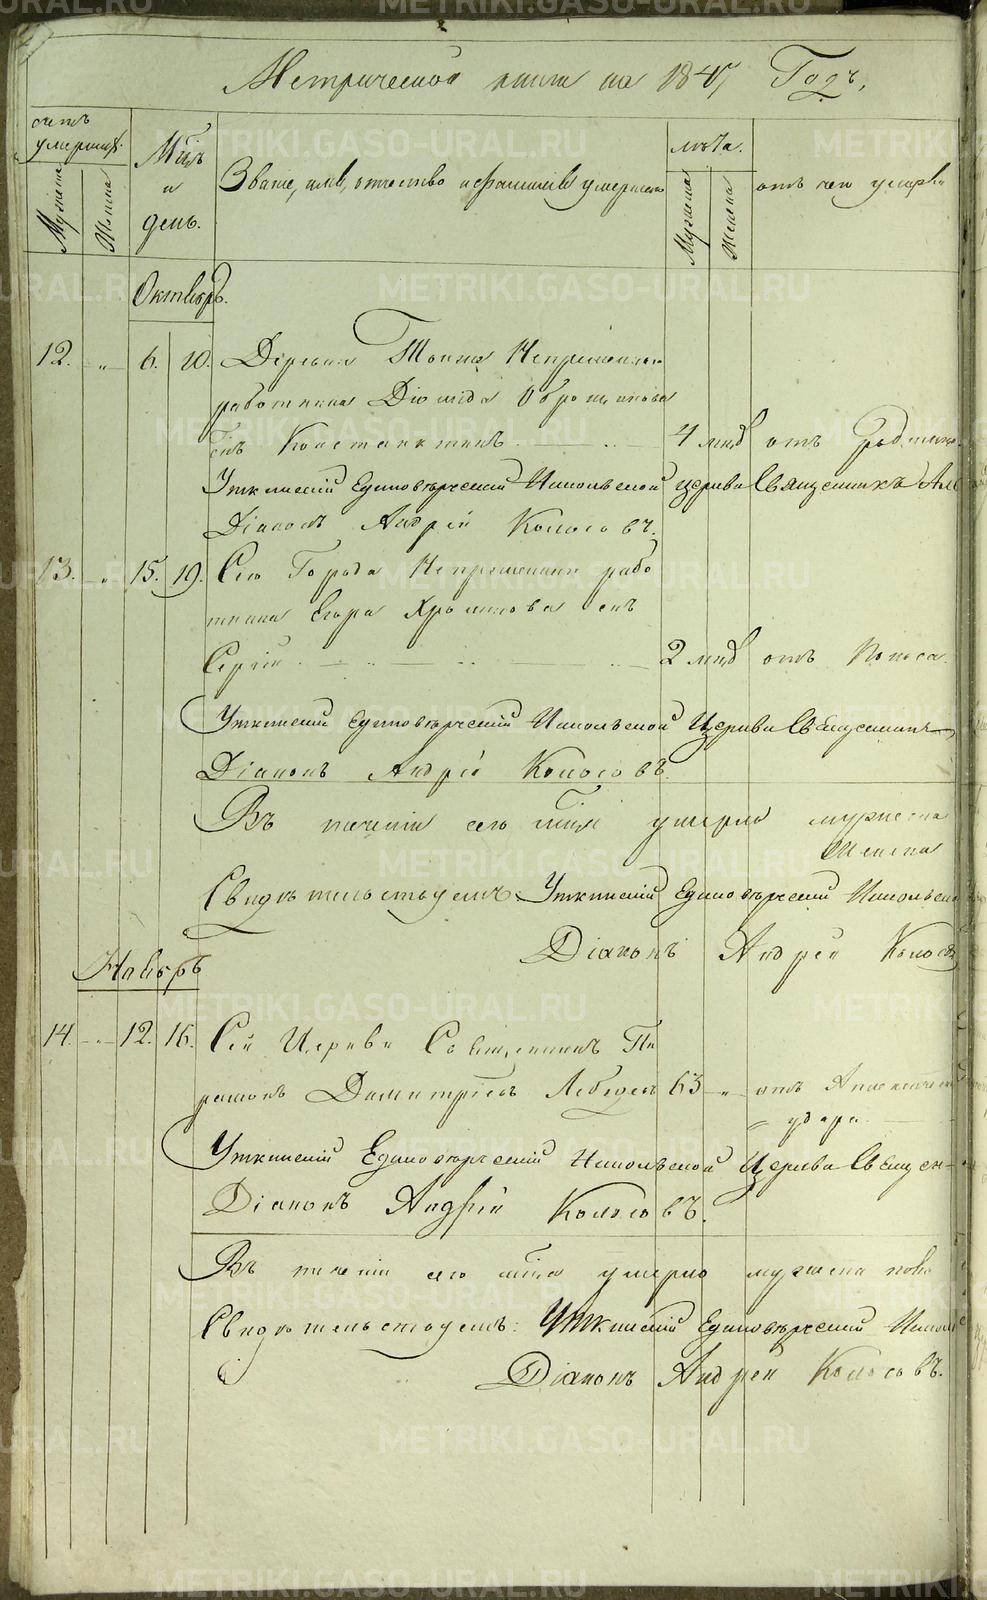 Метрической книги на 184 Годъ,
счетъ умершихъ.
Мужеска
Женска
Мцъ и день.
Званіе, имя, отчество и фамилія умершаго
лѣта.
Мужеска
Женска
отъ чего умре
Октябрь.
12. " 6. 10. Деревни Непремѣннаго
работника Діомида
сынъ Константинъ 4 мцъ отъ
Уткинскій Единовѣрческій Никольской церкви Священникъ
Діаконъ Андрей Колосовъ.
13. " 15. 19. Сего Города Непремѣннаго рабо
тника Егора Хромцова сынъ
Сергій 2 мцъ отъ поноса.
Уткинскій Единовѣрческій Никольской Церкви Священникъ
Діаконъ Андрей Колосовъ.
Въ теченіи сего мцѣ умерло мужеска
Женска
Свидѣтельствуемъ: Уткинскій Единовѣрческій Никольско
Діаконъ Андрей Колосовъ
Ноябрь
14. " 12. 16. Сей Церкви Священникъ Па
рамонъ Димитріевъ Лебедевъ 63 " отъ Апоплексическ
удара
Уткинскій Единовѣрческій Никольской Церкви Священ-
Діаконъ Андрей Колосовъ.
Въ теченіи сего мцѣ умерло мужеска пола
Свидѣтельствуемъ: Уткинскій Единовѣрческій Никол
Діаконъ Андрей Колосовъ.
METRIKI.GASO-URAL.RU